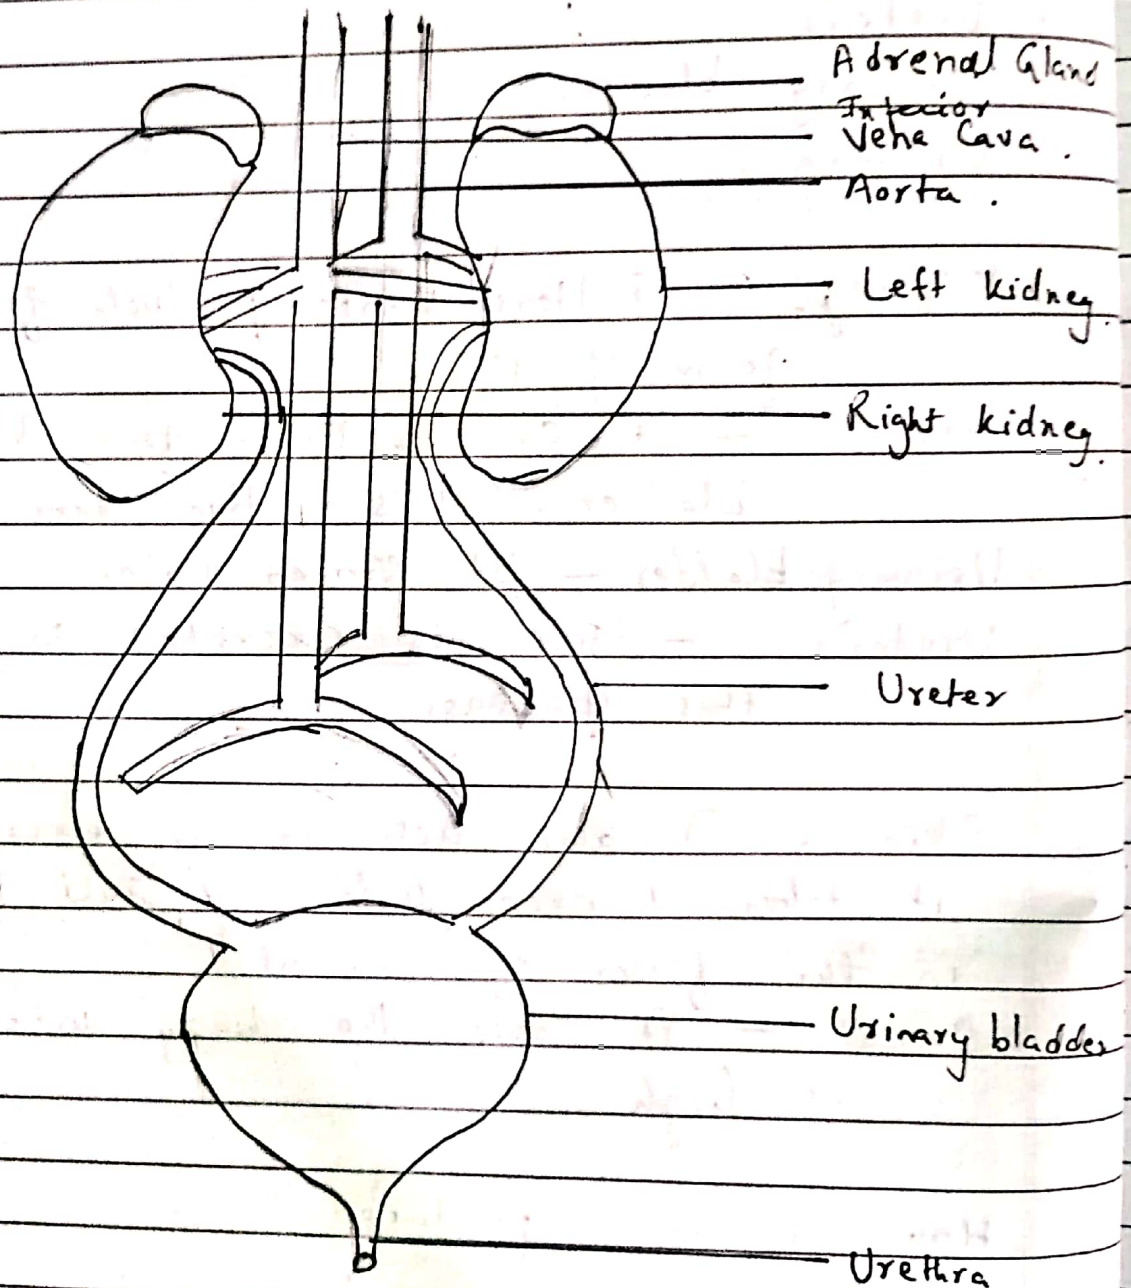 Adrenal Gland
Inferior
Vena Cava .
Aorta .
Left kidney.
Right kidney.
Ureter
Urinary bladder
Urethra